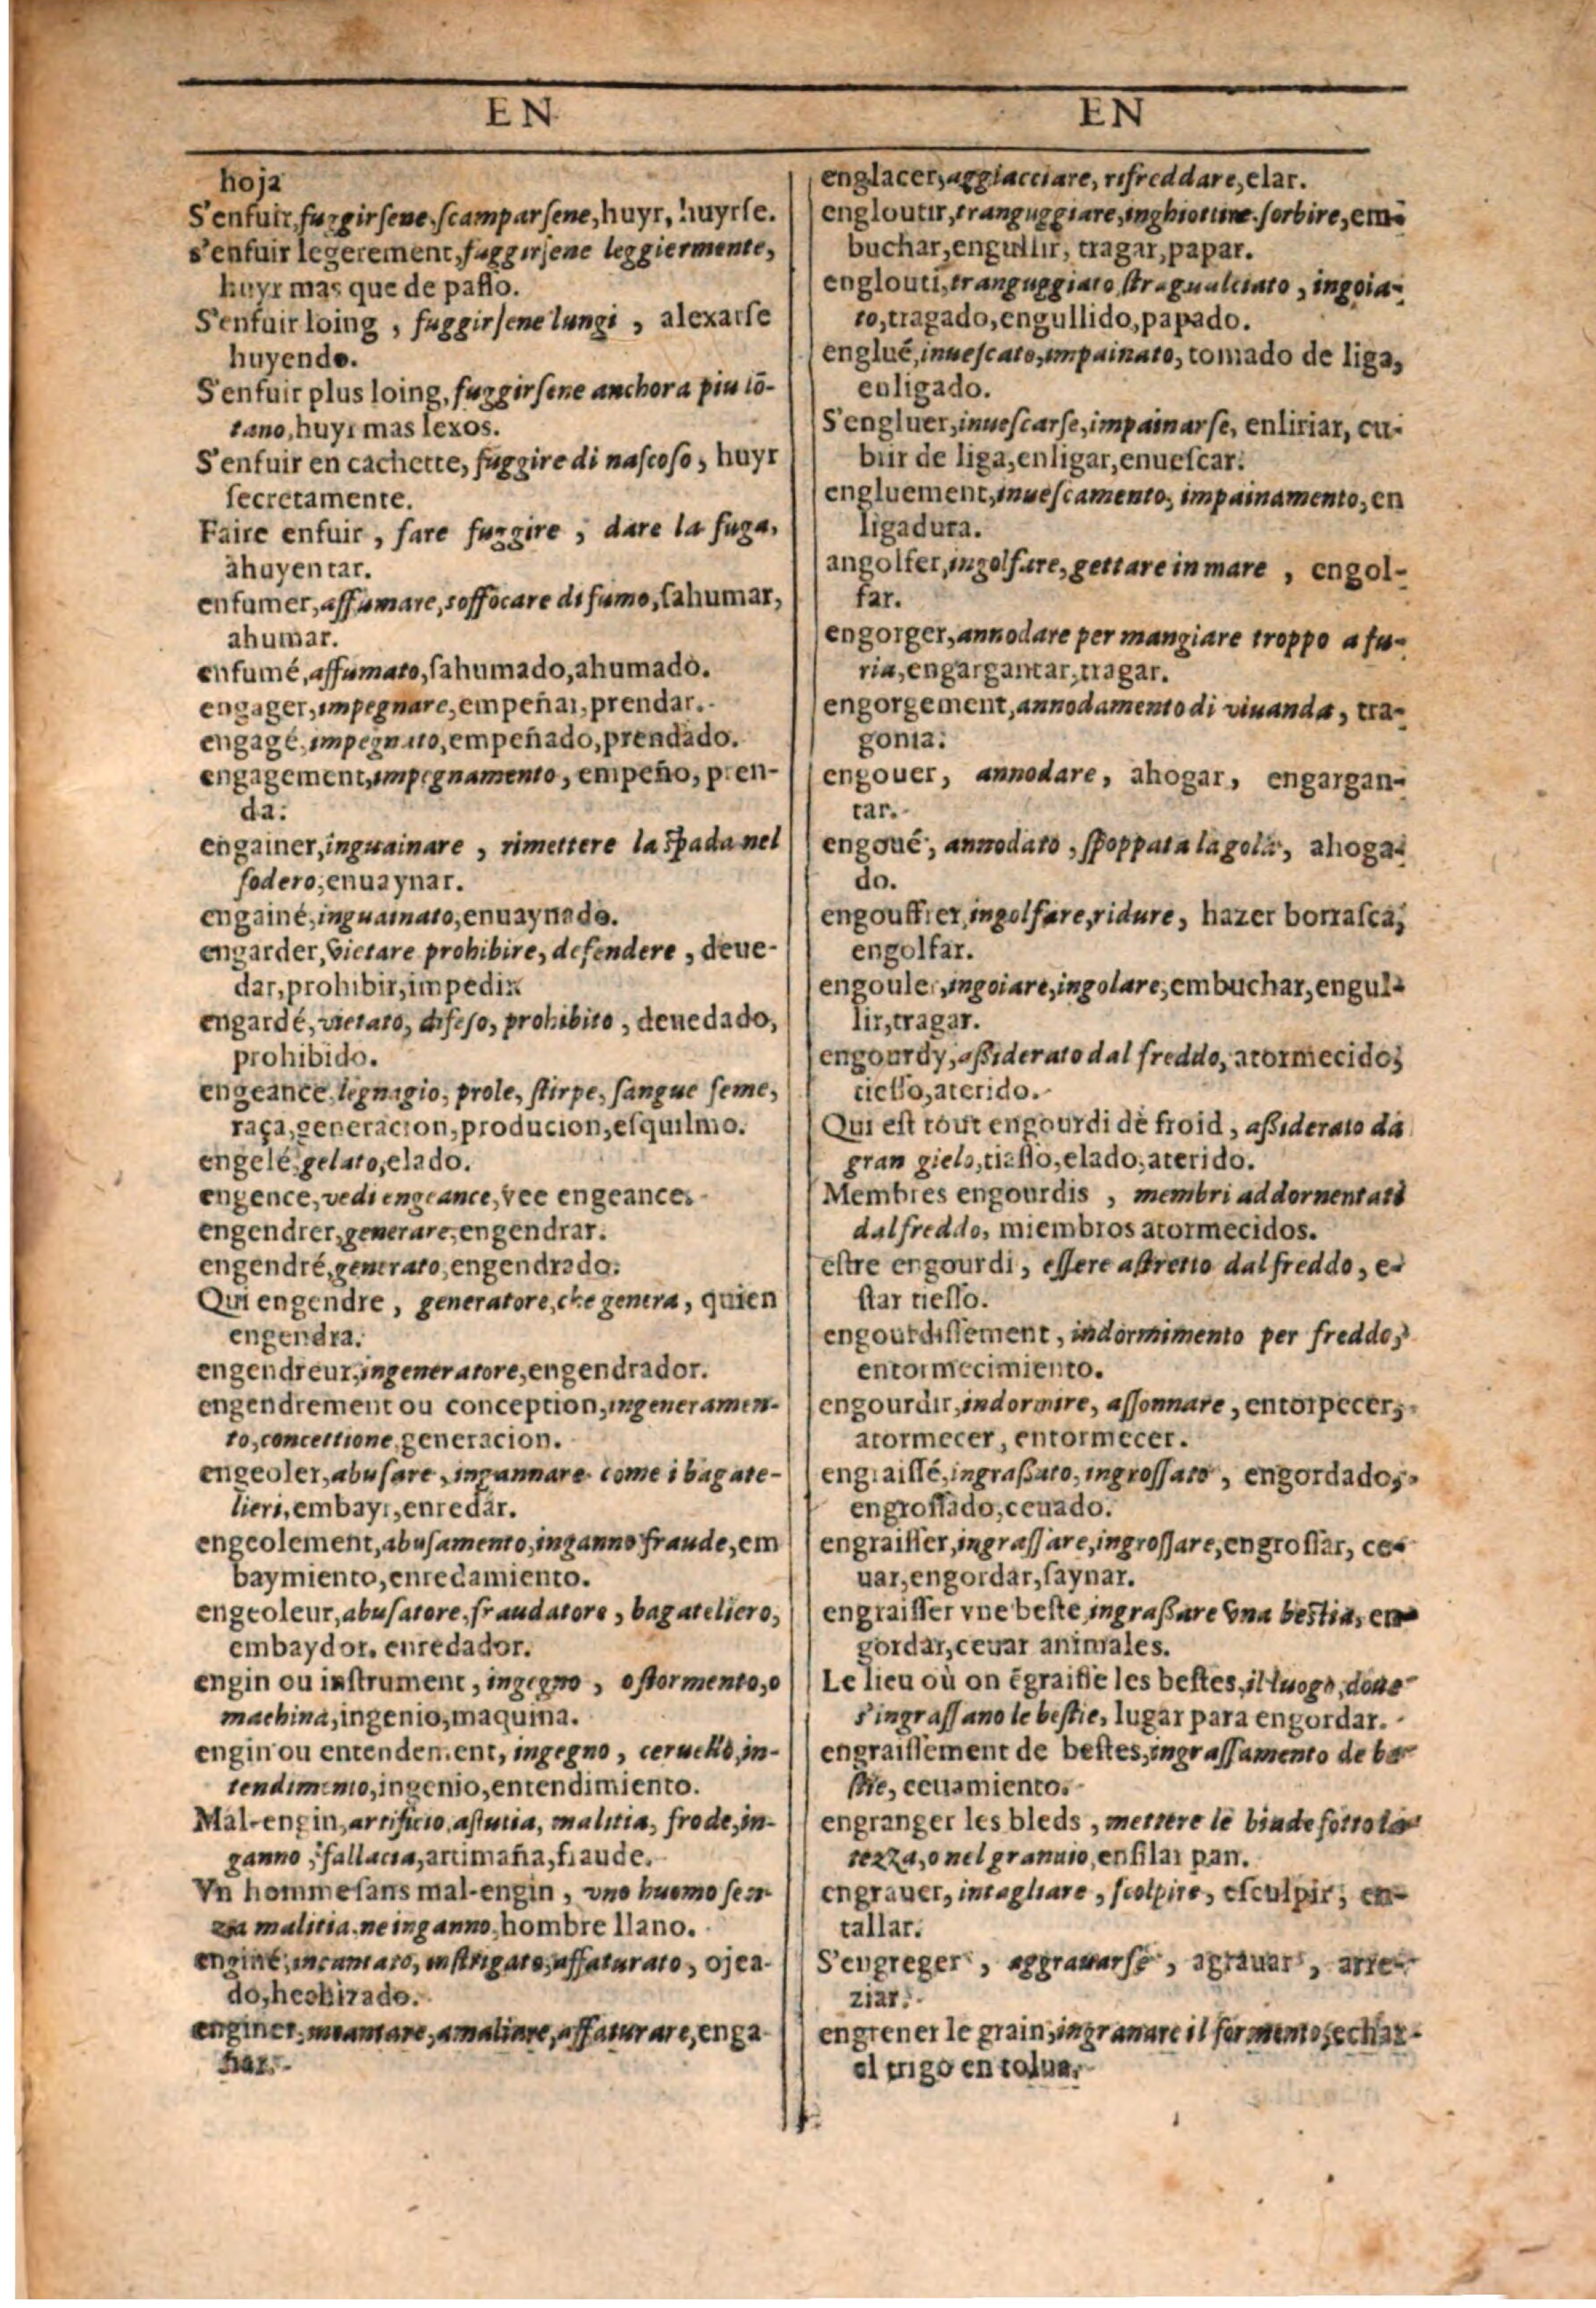 EN
EN
hoja
S'enfuir, fuggirsene, scamparsene, huyr, huyrse.
s'enfuir legerement, fuggirsene leggiermente,
huyr mas que de passo.
S'enfuir loing, fuggirsene lungi, alexarse
huyendo.
S'enfuir plus loing, fuggirsene anchora piu lō-
tano, huyr mas lexos.
S'enfuir en cachette, fuggire di nascoso, huyr
secretamente.
Faire enfuir, fare fuggire, dare la fuga,
ahuyentar.
enfumer, affumare, soffocare di fumo, sahumar,
ahumar.
enfumé, affumato, sahumado, ahumado.
engager, impegnare, empeñar, prendar.
engagé, impegnato, empeñado, prendado.
engagement, impegnamento, empeño, pren-
da.
engainer, inguainare, rimettere la spada nel
fodero, enuaynar.
engainé, inguainato, enuaynado.
engarder, vietare prohibire, defendere, deue-
dar, prohibir, impedir
engardé, vietato, difeso, prohibito, deuedado,
prohibido.
engeance, legnagio, prole, stirpe, sangue seme,
raça, generacion, producion, esquilmo.
engelé, gelato, elado.
engence, vedi engeance, vee engeance.
engendrer, generare, engendrar.
engendré, generato, engendrado.
Qui engendre, generatore, che genera, quien
engendra.
engendreur, ingeneratore, engendrador.
engendrement ou conception, ingeneramen-
to, concettione, generacion.
engeoler, abusare, ingannare come i bagate-
lieri, embayr, enredar.
engeolement, abusamento, inganno fraude, em
baymiento, enredamiento.
engeoleur, abusatore, fraudatore, bagateliero,
embaydor, enredador.
engin ou instrument, ingegno, o stormento, o
machina, ingenio, maquina.
engin ou entendement, ingegno, ceruello, in-
tendimento, ingenio, entendimiento.
Mal-engin, artificio, astutia, malitia, frode, in-
ganno, fallacia, artimaña, fraude.
Vn homme sans mal-engin, vno huomo sen-
za malitia, ne inganno, hombre llano.
enginé, incantato, instrigato, affaturato, ojea-
do, hechizado.
enginer, incantare, amaliare, affaturare, enga-
ñar.
englacer, aggiacciare, rifreddare, elar.
engloutir, tranguggiare, inghiottire, sorbire, em-
buchar, engullir, tragar, papar.
englouti, tranguggiato, stragualciato, ingoia-
to, tragado, engullido, papado.
englué, inuescato, impainato, tomado de liga,
enligado.
S'engluer, inuescarse, impainarse, enliriar, cu-
brir de liga, enligar, enuescar.
engluement, inuescamento, impainamento, en
ligadura.
angolfer, ingolfare, gettare in mare, engol-
far.
engorger, annodare per mangiare troppo a fu-
ria, engargantar, tragar.
engorgement, annodamento di viuanda, tra-
gonia.
engouer, annodare, ahogar, engargan-
tar.
engoué, annodato, stoppata la gola, ahoga-
do.
engouffrer, ingolfare, ridure, hazer borrasca,
engolfar.
engouler, ingoiare, ingolare, embuchar, engul-
lir, tragar.
engourdy, assiderato dal freddo, atormecido,
tiesso, aterido.
Qui est tout engourdi de froid, assiderato da
gran gielo, tiesso, elado, aterido.
Membres engourdis, membri addormentati
dal freddo, miembros atormecidos.
estre engourdi, essere astretto dal freddo, e-
star tiesso.
engourdissement, indormimento per freddo,
entormecimiento.
engourdir, indormire, assonnare, entorpecer,
atormecer, entormecer.
engraissé, ingrassato, ingrossato, engordado,
engrossado, ceuado.
engraisser, ingrassare, ingrossare, engrossar, ce-
uar, engordar, saynar.
engraisser vne beste, ingrassare vna bestia, en-
gordar, ceuar animales.
Le lieu où on ēgraisse les bestes, il luogo, doue
s'ingrassano le bestie, lugar para engordar.
engraissement de bestes, ingrassamento de be-
stie, ceuamiento.
engranger les bleds, mettere le biade sotto la
tezza, o nel granaio, ensilar pan.
engrauer, intagliare, scolpire, esculpir, en-
tallar.
S'engreger, aggrauarse, agrauar, arre-
ziar.
engrener le grain, ingranare il formento, echar
el trigo en tolua.